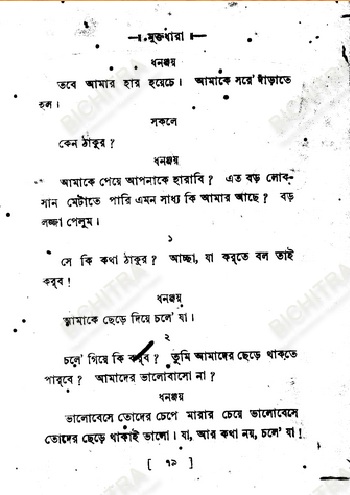 মুক্তধারা
ধনঞ্জয়
তবে আমার হার হয়েচে। আমাকে সরে' দাঁড়াতে
হল।
সকলে
কেন ঠাকুর?
ধনঞ্জয়
আমাকে পেয়ে আপনাকে হারাবি? এত বড় লোক-
সান মেটাতে পারি এমন সাধ্য কি আমার আছে? বড়
লজ্জা পেলুম।
১
সে কি কথা ঠাকুর? আচ্ছা, যা কর্‌তে বল তাই
কর্‌ব!
ধনঞ্জয়
আমাকে ছেড়ে দিয়ে চলে' যা।
২
চলে' গিয়ে কি কর্‌ব? তুমি আমাদের ছেড়ে থাক্‌তে
পার্‌বে? আমাদের ভালোবাসো না?
ধনঞ্জয়
ভালোবেসে তোদের চেপে মারার চেয়ে ভালোবেসে
তোদের ছেড়ে থাকাই ভালো। যা, আর কথা নয়, চলে' যা!
[ ৭৯ ]
BICHITRA
BICHITRA
BICHITRA
BICHITRA